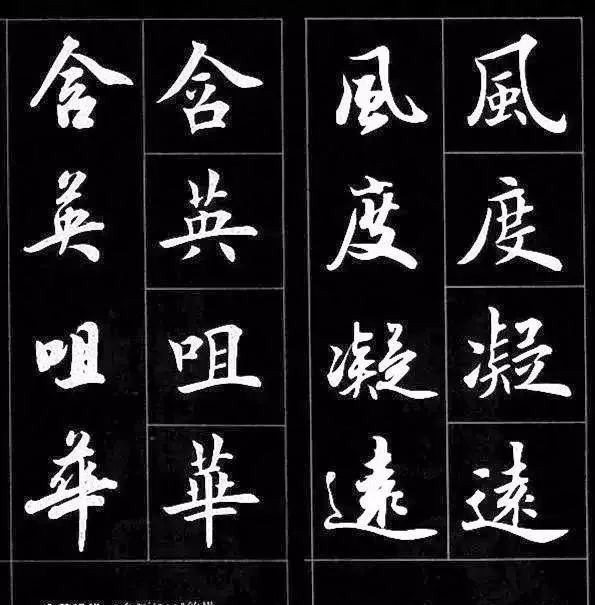 風度凝遠
風度凝遠
含英咀華
含英咀華